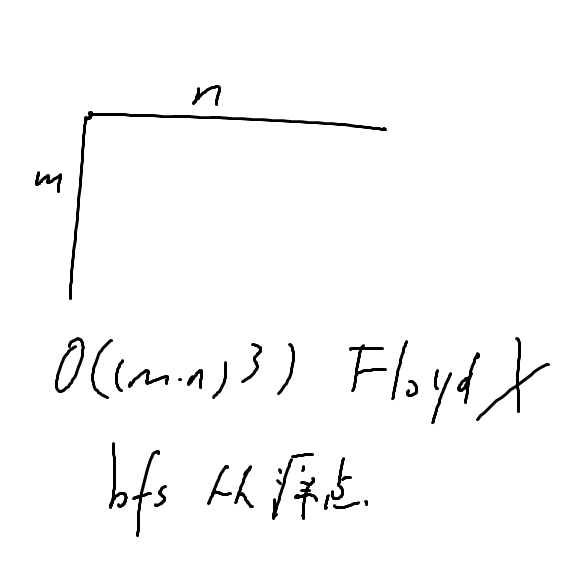 n
m
O((m·n)³) Floyd X
bfs 从源点.